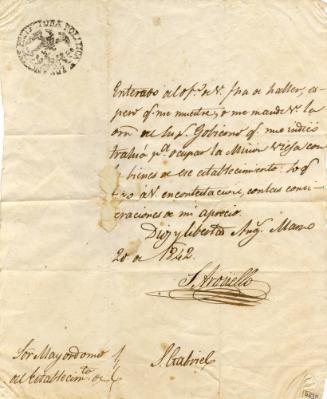 Enterado del of.º de V. fha. de haller, es
pero q.e me muestre, o me mande V. la
orn. del Sup. Gobierno q.e me indicó
trahia p.a ocupar la Mision Viejacon
bienes de ese establecimiento. lo q.e
digo a V. en contestacion, con las consi
deraciones de mi aprecio.
Dios y libertad Ang.s Marzo
20 de 1842.
S. Arguello
Sor. Mayordomo
del Establecim.to de
S. Gabriel